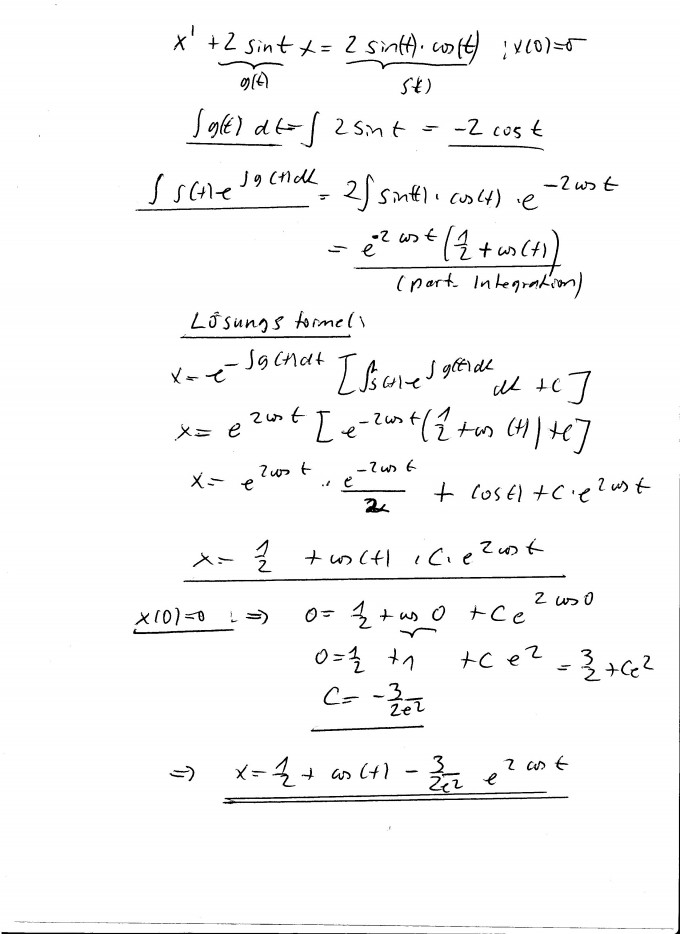 x' + 2 sin t x = 2 sin(t) · cos(t) ; x(0)=0
g(t) s(t)
∫ g(t) dt = ∫ 2 sin t = -2 cos t
∫ s(t) e^{∫ g(t) dt} = 2 ∫ sin(t) · cos(t) · e^{-2 cos t}
= e^{-2 cos t} (1/2 + cos(t))
(part. Integration)
Lösungsformel:
x = e^{-∫ g(t) dt} [∫ s(t) e^{∫ g(t) dt} dt + C]
x = e^{2 cos t} [e^{-2 cos t} (1/2 + cos(t)) + C]
x = e^{2 cos t} · e^{-2 cos t}/2 + cos(t) + C · e^{2 cos t}
x = 1/2 + cos(t) + C · e^{2 cos t}
x(0)=0 : ⇒ 0 = 1/2 + cos 0 + C e^{2 cos 0}
0 = 1/2 + 1 + C e^2 = 3/2 + C e^2
C = -3/(2e^2)
⇒ x = 1/2 + cos(t) - 3/(2e^2) e^{2 cos t}